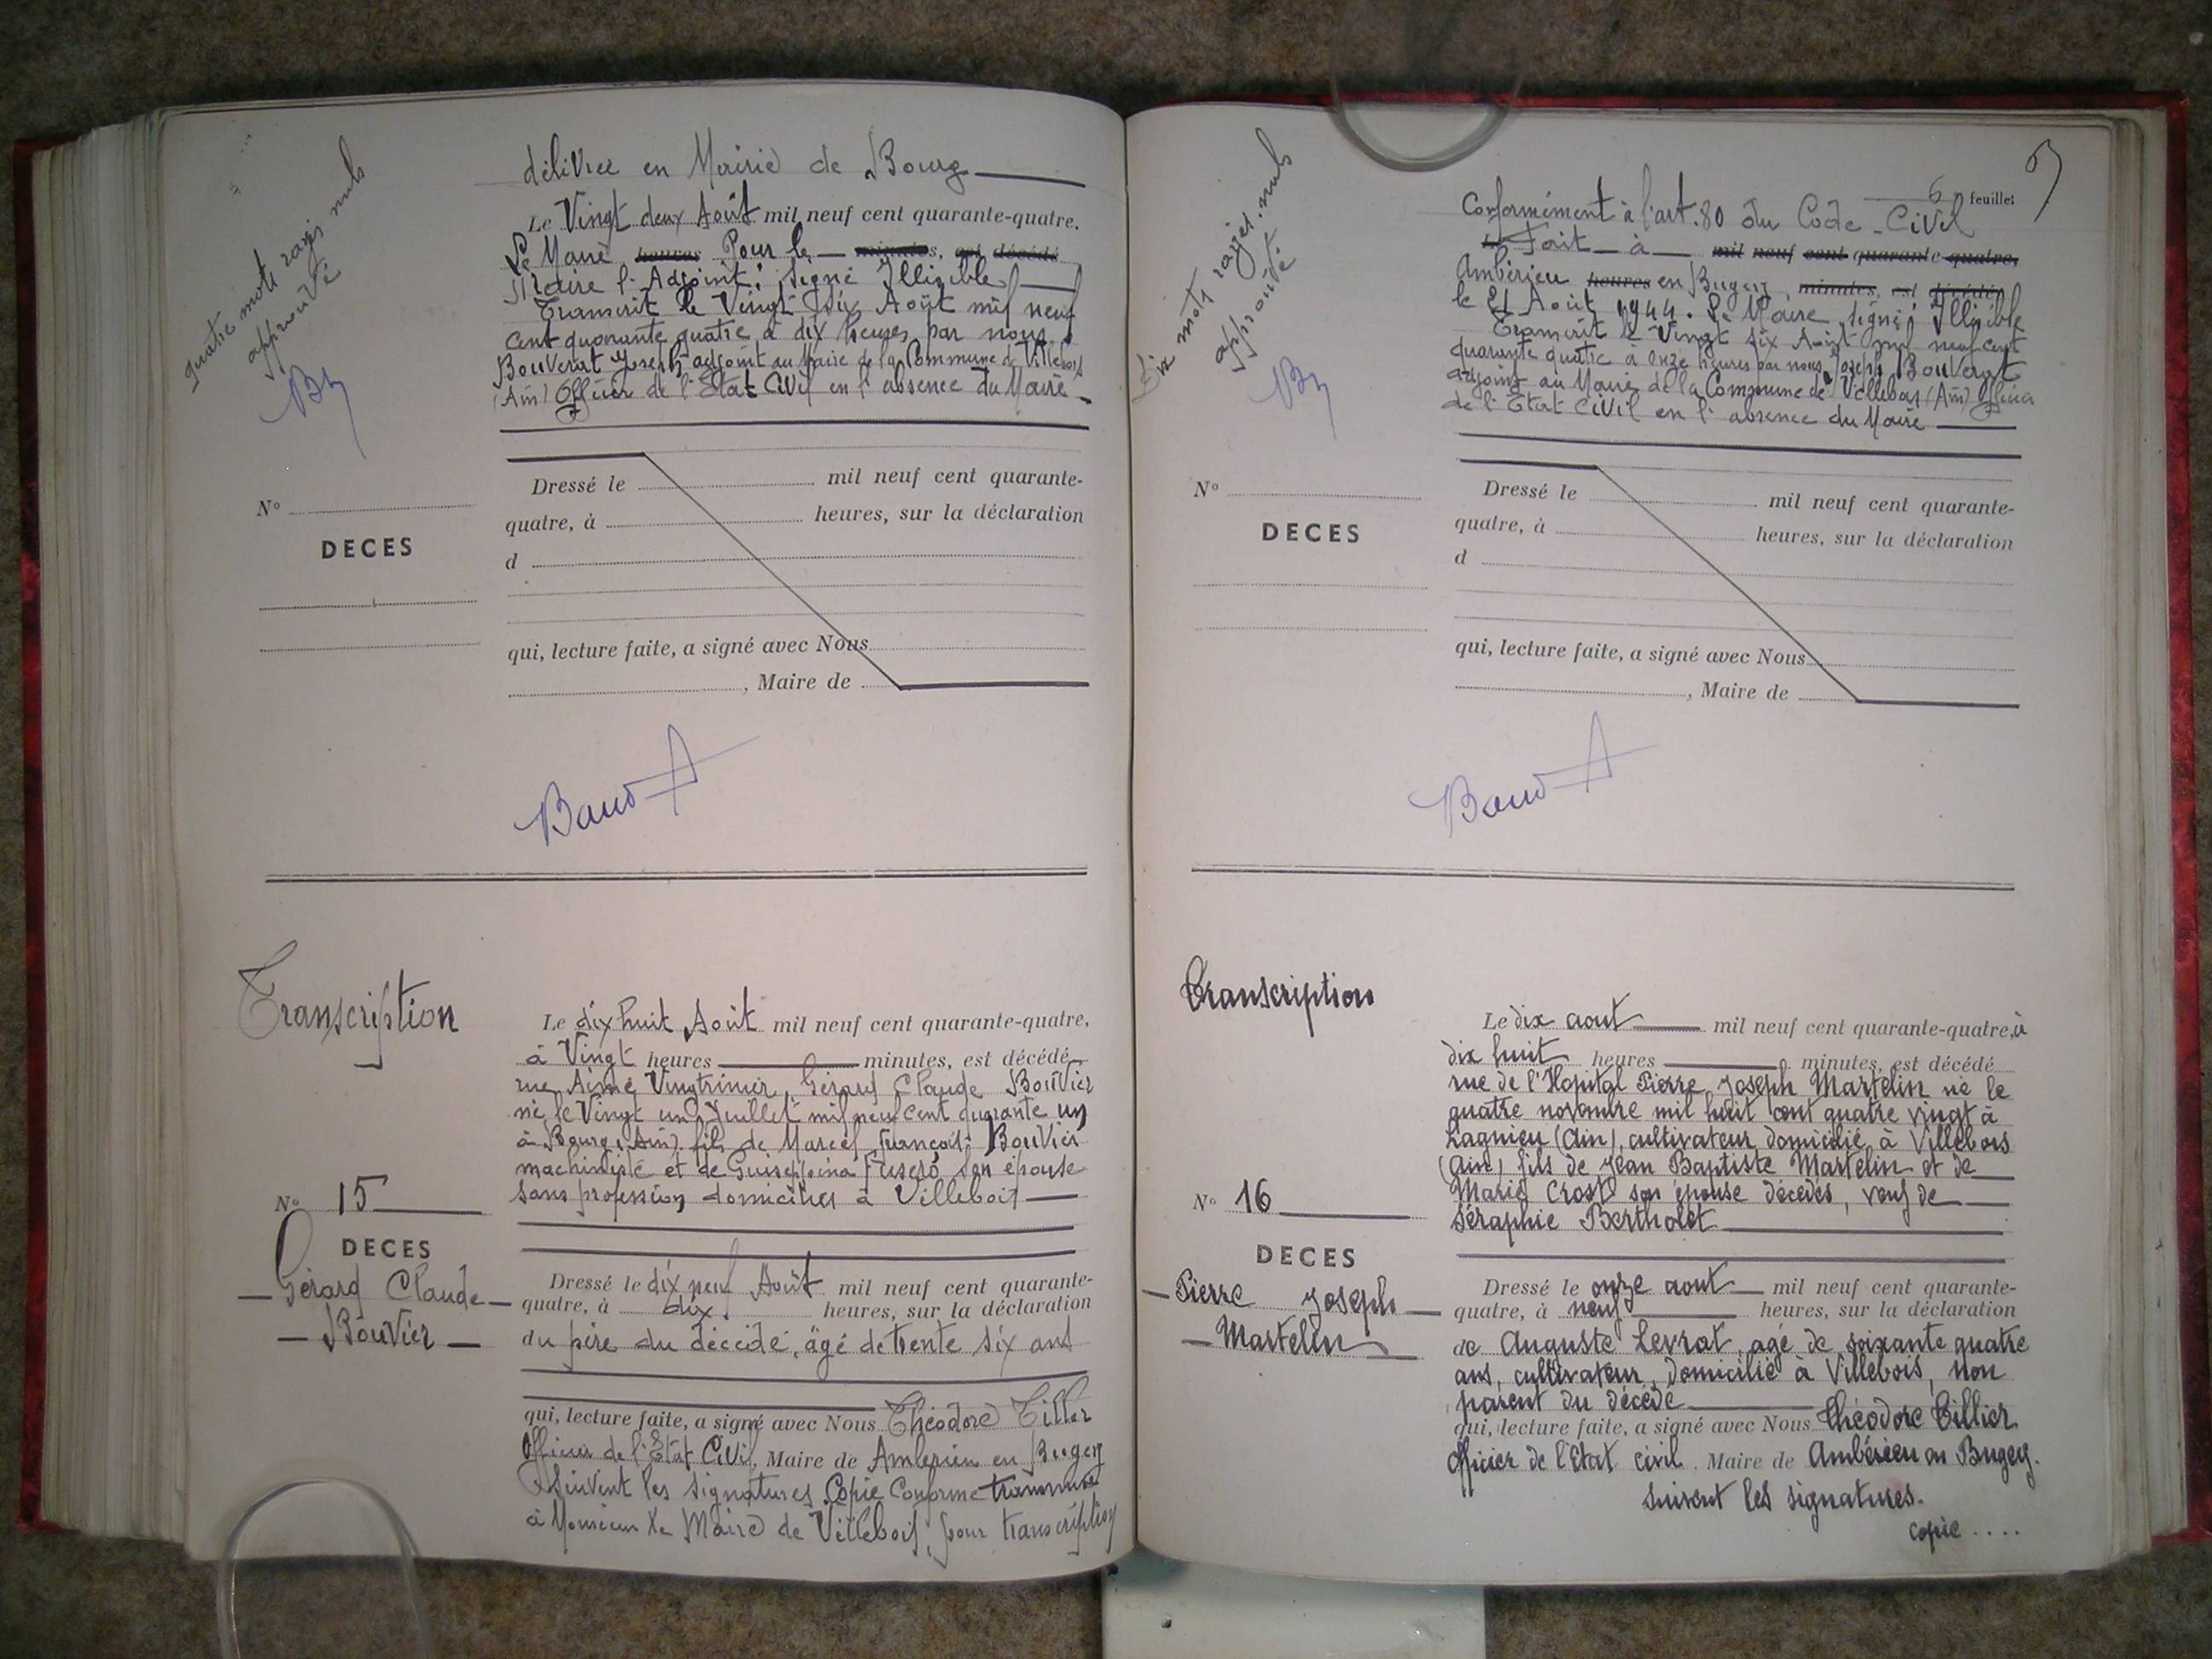 quatre mots rayés nuls
approuvé
délivrée en Mairie de Bourg
Le Vingt deux Août mil neuf cent quarante-quatre.
Le Maire, heures Pour le minutes, est décédé
Maire l'Adjoint: signé Illigible
Transcrit le Vingt six Août mil neuf
cent quarante quatre à dix heures, par nous
Bouverat Joseph adjoint au Maire de la Commune de Villebois
(Ain) Officier de l'Etat Civil en l'absence du Maire
Dressé le mil neuf cent quarante-
quatre, à heures, sur la déclaration
N°
DECES
d
qui, lecture faite, a signé avec Nous
, Maire de
Transcription
Le dix huit Août mil neuf cent quarante-quatre,
à Vingt heures minutes, est décédé
rue Aimé Vingtrinier, Gérard Claude Bouvier
né le Vingt un Juillet mil neuf cent quarante un
à Bourg (Ain), fils de Marcel François Bouvier
machiniste et de son épouse
sans profession, domiciliés à Villebois
N° 15
DECES
Gérard Claude
Bouvier
Dressé le dix neuf Août mil neuf cent quarante-
quatre, à dix heures, sur la déclaration
du père du décédé, âgé de trente six ans
qui, lecture faite, a signé avec Nous Théodore Tillier
Officier de l'Etat Civil, Maire de Amberieu en Bugey
Suivent les signatures Copie Conforme transmise
à Monsieur le Maire de Villebois, pour transcription
mots rayés nuls
approuvé
6 feuillet
Conformément à l'art. 80 du Code Civil
Fait à mil neuf cent quarante-quatre,
Ambérieu heures en Bugey, minutes, est décédé
le 21 Août 1944. Le Maire, signé: Illigible
Transcrit le Vingt six Août mil neuf cent
quarante quatre à onze heures par nous Joseph Bouverat
adjoint au Maire de la Commune de Villebois (Ain) Officier
de l'Etat Civil en l'absence du Maire
N°
DECES
Dressé le mil neuf cent quarante-
quatre, à heures, sur la déclaration
d
qui, lecture faite, a signé avec Nous
, Maire de
Transcription
Le dix aout mil neuf cent quarante-quatre, à
dix huit heures minutes, est décédé
rue de l'Hopital Pierre Joseph Martelin né le
quatre novembre mil huit cent quatre vingt à
Lagnieu (Ain), cultivateur domicilié à Villebois
(Ain) fils de Jean Baptiste Martelin et de
Marie Crost son épouse décédés, veuf de
Séraphie Bertholet
N° 16
DECES
Pierre Joseph
Martelin
Dressé le onze aout mil neuf cent quarante-
quatre, à neuf heures, sur la déclaration
de Auguste Levrat, agé de soixante quatre
ans, cultivateur, domicilié à Villebois, non
parent du décédé
qui, lecture faite, a signé avec Nous Théodore Tillier
Officier de l'Etat civil. Maire de Ambérieu en Bugey.
suivent les signatures.
Copie ....